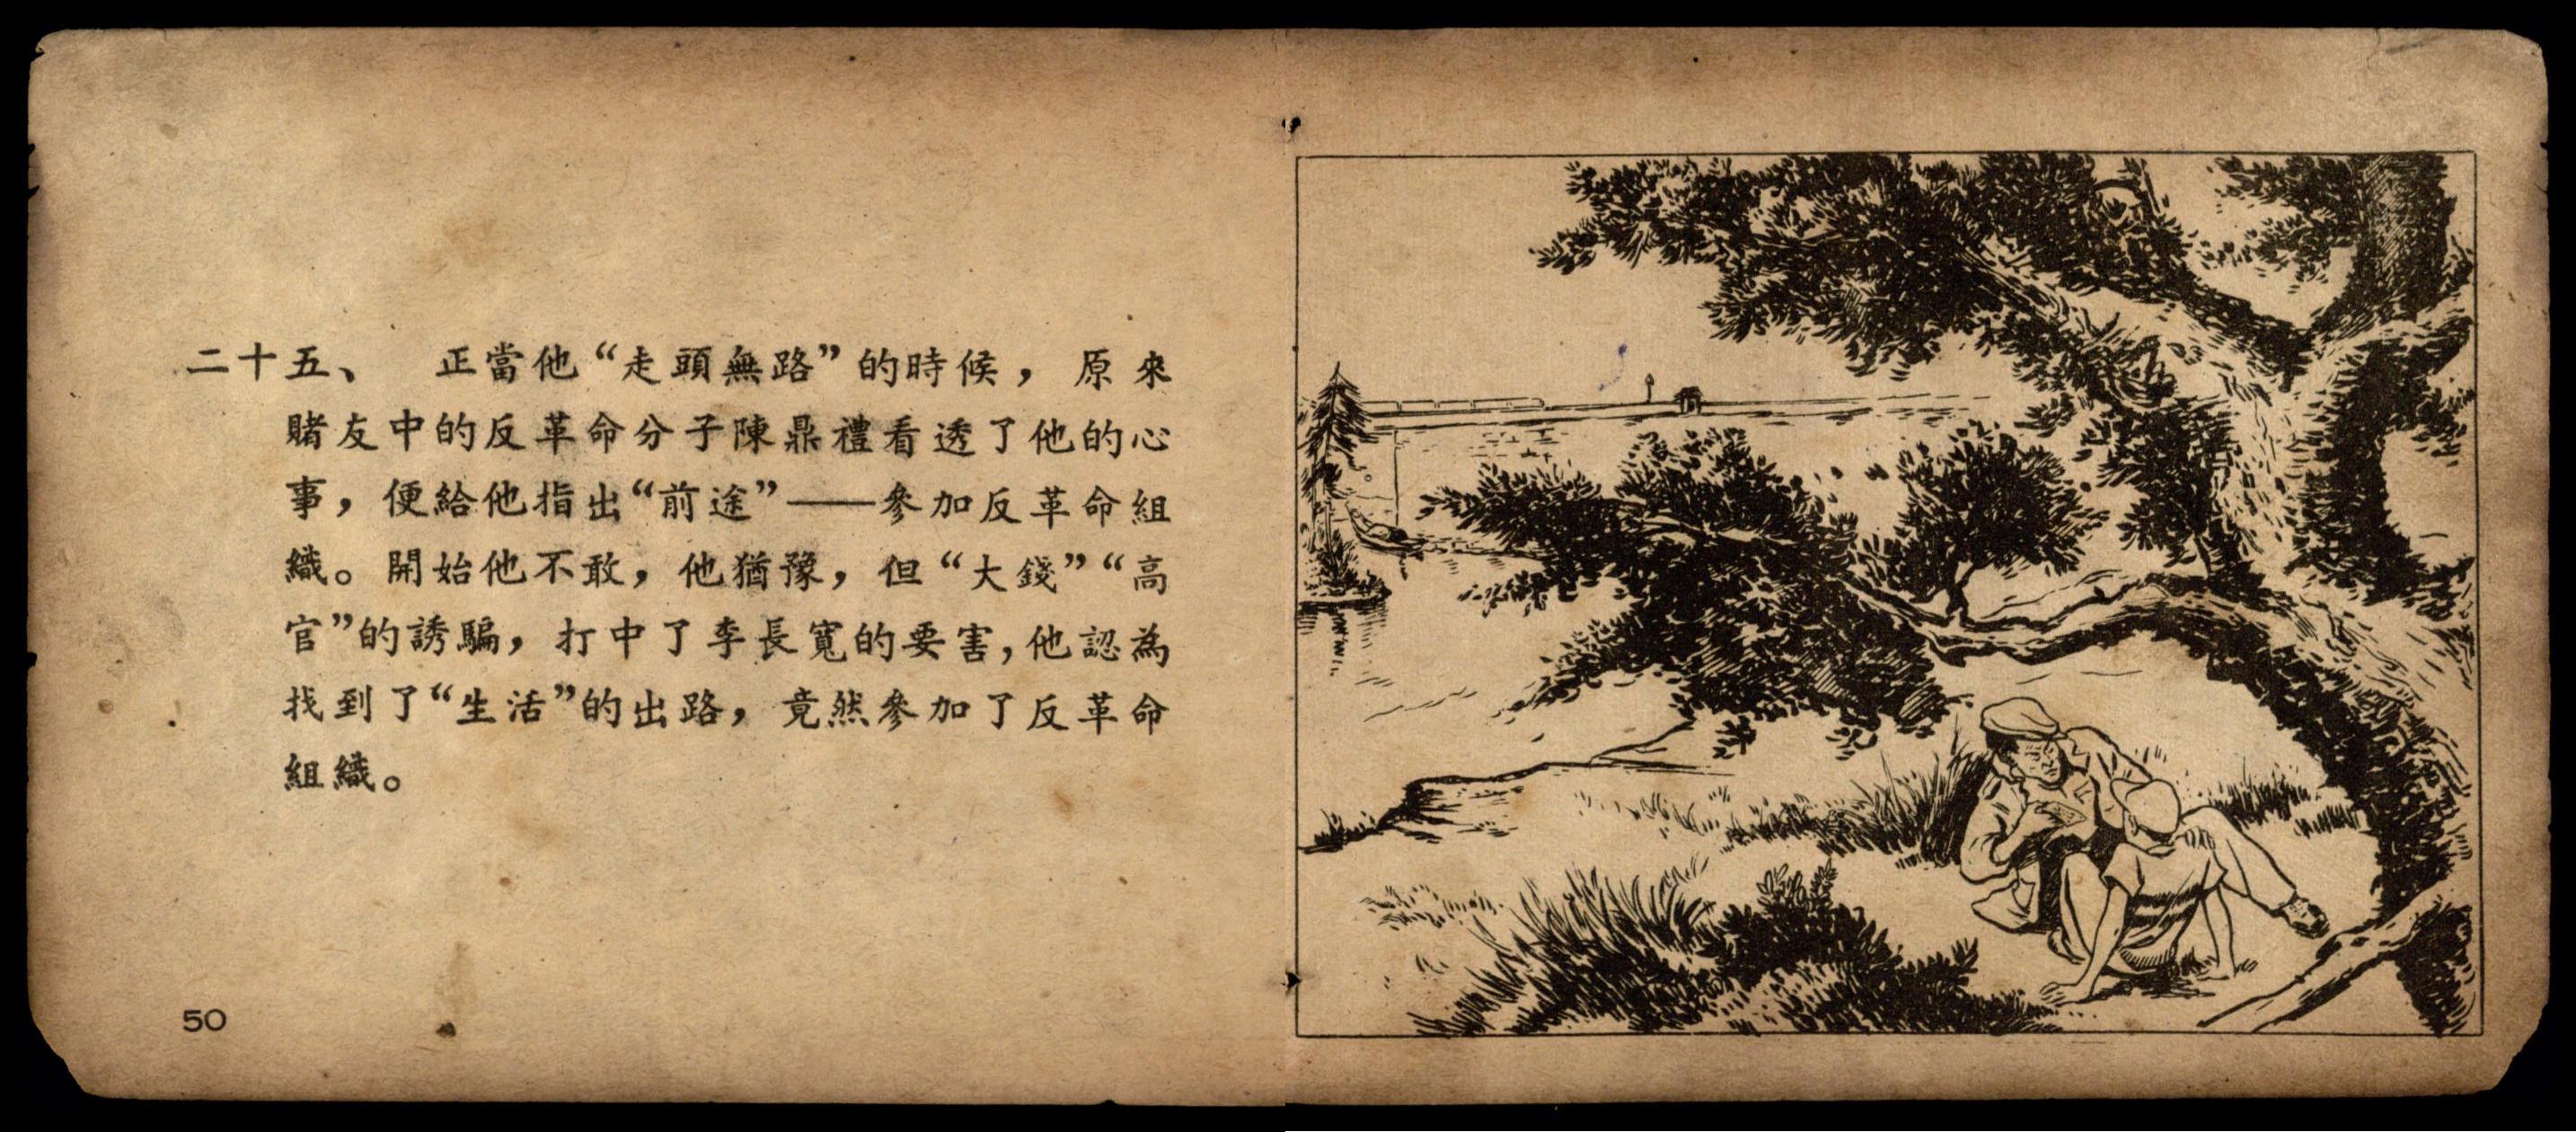 二十五、　正當他“走頭無路”的時候，原來
賭友中的反革命分子陳鼎禮看透了他的心
事，便給他指出“前途”——參加反革命組
織。開始他不敢，他猶豫，但“大錢”“高
官”的誘騙，打中了李長寬的要害，他認為
找到了“生活”的出路，竟然參加了反革命
組織。
50